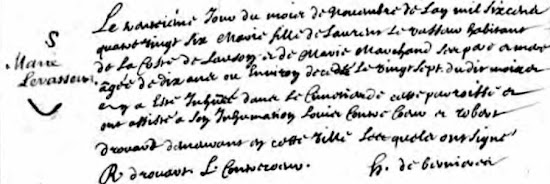 Le vantieime Jour du mois de Novembre de Lan mil six cens
S
quatre vingt six Marie fille de Laurens Le vasseur habitant
Marie
de la Coste de Lauson et de Marie Marchand ses pere et mere
Levasseur
agée de dix ans ou Environ decedée Le vingt sept. du dit mois et
en a Esté Inhumée dans le Cimetiere de cette parroisse et
ont assisté a son Inhumation Louis Contrecoeur et robert
drouart demeurans en cette ville Lesquels ont signé
R drouart. L Contrecoeur. h. de bernieres